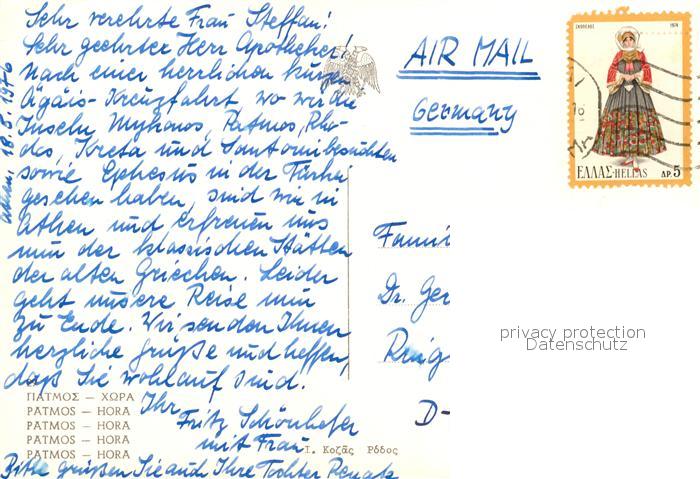 Athen, 18.5.1976
Sehr verehrte Frau Steffan!
Sehr geehrter Herr Apotheker!
Nach einer herrlichen kurzen
Ägäis-Kreuzfahrt, wo wir die
Inseln Mykonos, Patmos, Rho-
dos, Kreta und Santorin besuchten
sowie Ephesus in der Türkei
gesehen haben, sind wir in
Athen und erfreuen uns
nun der klassischen Stätten
der alten Griechen. Leider
geht unsere Reise nun
zu Ende. Wir senden Ihnen
herzliche Grüße und hoffen,
daß Sie wohlauf sind.
Ihr
Fritz Schönhofer
mit Frau
Bitte grüßen Sie auch Ihre Tochter Renate
ΠΑΤΜΟΣ — ΧΩΡΑ
PATMOS — HORA
PATMOS — HORA
PATMOS — HORA
PATMOS — HORA
Ι. Κοζᾶς Ρόδος
AIR MAIL
Germany
Fami
Dr. Ger
Ring
D-
ΣΚΟΠΕΛΟΣ 1974
ΕΛΛΑΣ-HELLAS ΔΡ. 5
privacy protection
Datenschutz